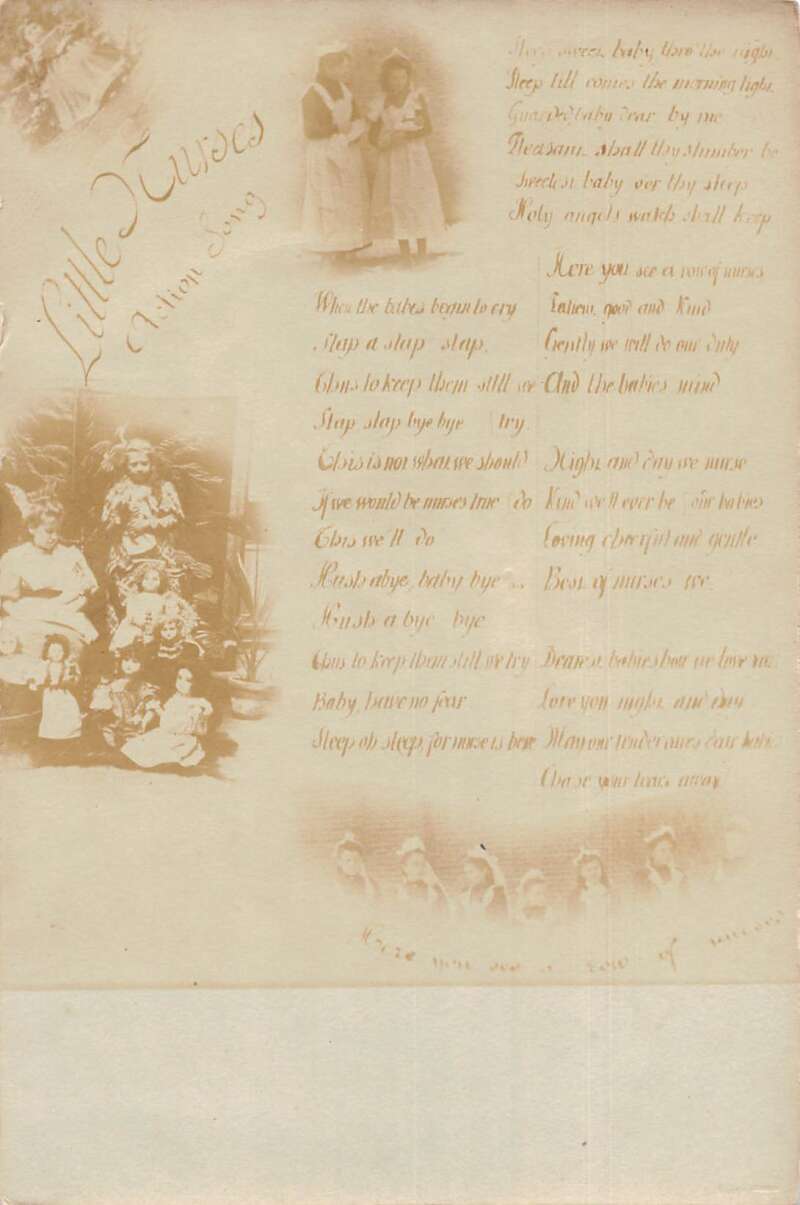 Little Nurses
Action Song
Sleep sweet baby thro' the night
Sleep till comes the morning light
Guarded baby dear by me
Pleasant shall thy slumber be
Sweetest baby oer thy sleep
Holy angels watch shall keep
Here you see a row of nurses
Patient, good and Kind
Gently we will do our duty
And the babies mind
Night and day we nurse
Kind we'll ever be our babies
Loving cheerful and gentle
Best of nurses we.
Dearest babies how we love you
Love you night and day
May our tender care
Chase your tears away
When the babes begin to cry
Slap a slap slap.
Thus to keep them still we
Slap slap bye bye try
This is not what we should
If we would be nurses true do
This we'll do
Hush abye, baby bye ..
Hush a bye bye
Thus to keep them still we try
Baby, have no fear
Sleep oh sleep, for nurse is here
Here you see a row of